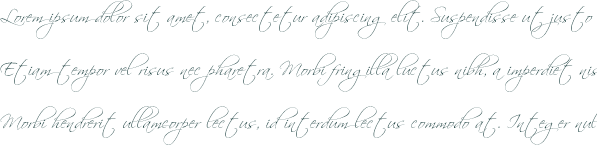 Lorem ipsum dolor sit amet, consectetur adipiscing elit. Suspendisse ut justo
Etiam tempor vel risus nec pharetra. Morbi fringilla luctus nibh, a imperdiet nis
Morbi hendrerit ullamcorper lectus, id interdum lectus commodo at. Integer nul